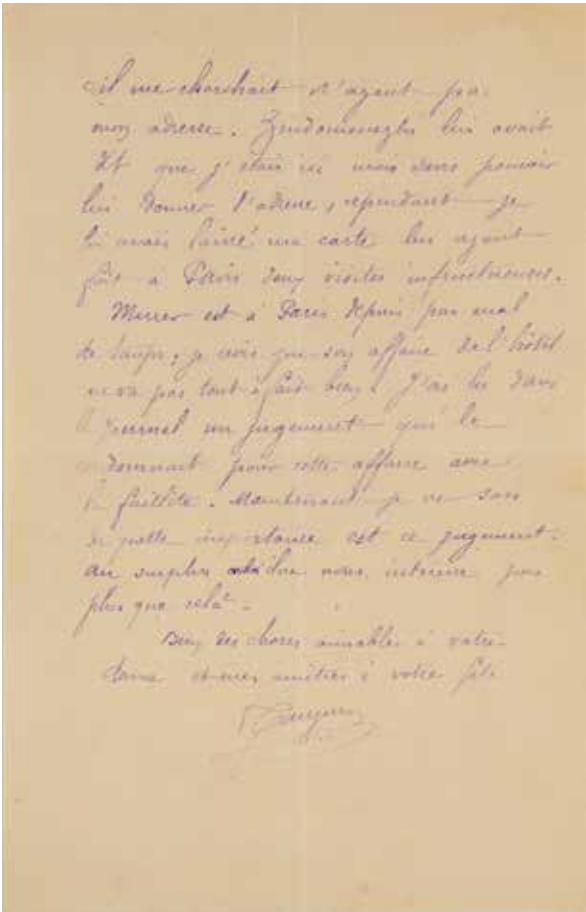 il me cherchait n'ayant pas
mon adresse. lui avait
dit que j'étais ici mais sans pouvoir
lui donner l'adresse, cependant je
lui avais laissé une carte lui ayant
fait à Paris deux visites infructueuses.
Murer est à Paris depuis pas mal
de temps, je crois que son affaire de l'hôtel
ne va pas tout à fait bien. J'ai lu dans
journal un jugement qui le
pour cette affaire avec
faillite. Maintenant je ne sais
de quelle importance est ce jugement.
Au surplus nous intéresse pas
plus que cela.
Bien des choses aimables à votre
dame et mes amitiés à votre fils